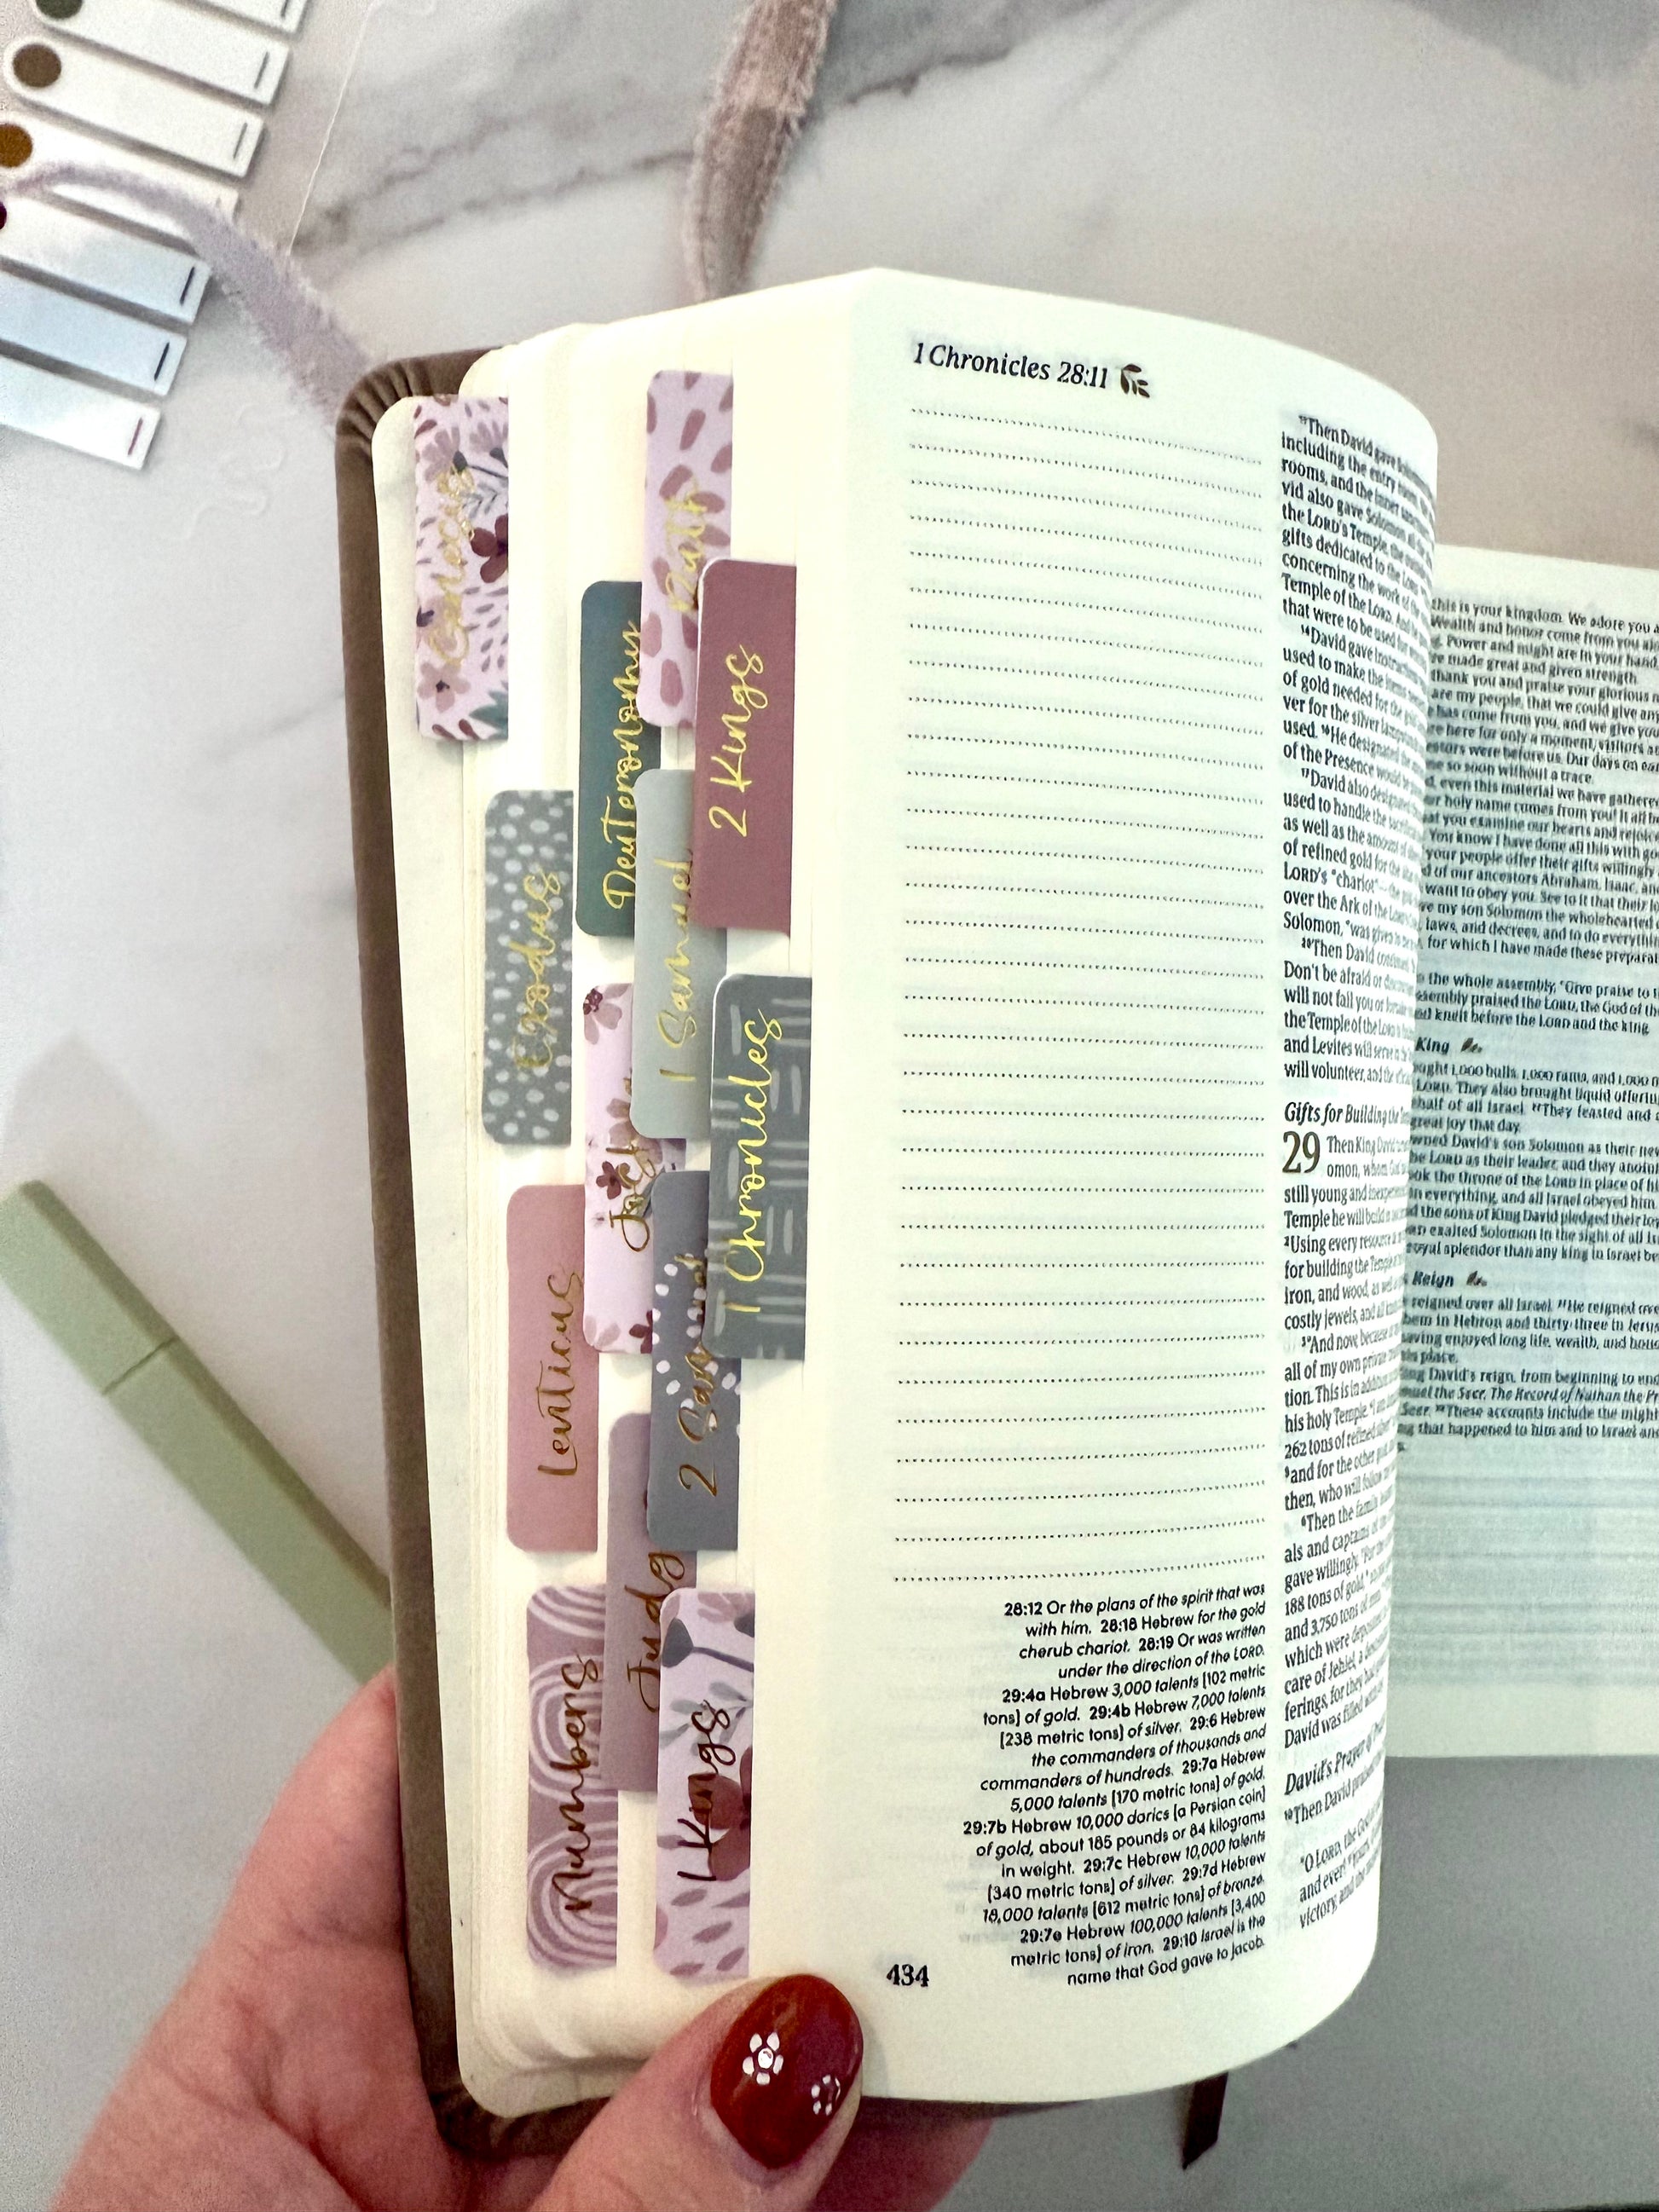 Genesis
Exodus
Leviticus
Numbers
Deuteronomy
Ruth
1 Samuel
2 Samuel
1 Kings
2 Kings
1 Chronicles
1 Chronicles 28:11
28:12 Or the plans of the spirit that was
with him. 28:18 Hebrew for the gold
cherub chariot. 28:19 Or was written
under the direction of the LORD.
29:4a Hebrew 3,000 talents [102 metric
tons] of gold. 29:4b Hebrew 7,000 talents
[238 metric tons] of silver. 29:6 Hebrew
the commanders of thousands and
commanders of hundreds. 29:7a Hebrew
5,000 talents [170 metric tons] of gold.
29:7b Hebrew 10,000 darics [a Persian coin]
of gold, about 185 pounds or 84 kilograms
in weight. 29:7c Hebrew 10,000 talents
[340 metric tons] of silver. 29:7d Hebrew
18,000 talents [612 metric tons] of bronze.
29:7e Hebrew 100,000 talents [3,400
metric tons] of iron. 29:10 Israel is the
name that God gave to Jacob.
434
11Then David gave
including the entry room,
rooms, and the inner
vid also gave Solomon all
the LORD's Temple, the
gifts dedicated to the
concerning the work of the
Temple of the LORD.
that were to be used for
14David gave
used to make the items
of gold needed for the
ver for the silver
used. 16He designated the
of the Presence would be
17David also designated
used to handle the
as well as the amount of
of refined gold for the
LORD's "chariot"—the
over the Ark of the
Solomon, "was given to
20Then David continued,
Don't be afraid or
will not fail you or
the Temple of the LORD
and Levites will serve
will volunteer, and the
Gifts for Building the
29 Then King David
omon, whom God
still young and
Temple he will build
2Using every resource
for building the Temple
iron, and wood, as well
costly jewels, and all
3"And now, because
all of my own private
tion. This is in addition
his holy Temple.
262 tons of refined silver
5and for the other
then, who will follow
6Then the family
als and captains of
gave willingly.
188 tons of gold,
and 3,750 tons of
which were deposited
care of Jehiel, a
ferings, for they had
David was filled with
David's Prayer of
10Then David praised
"O LORD, the God
and ever!
victory, and the
this is your kingdom. We adore you
Wealth and honor come from you
Power and might are in your hand,
made great and given strength.
thank you and praise your glorious
are my people, that we could give any
has come from you, and we give you
here for only a moment, visitors
were before us. Our days on
so soon without a trace.
even this material we have gathered
holy name comes from you! It all
you examine our hearts and rejoice
You know I have done all this with
your people offer their gifts willingly
of our ancestors Abraham, Isaac, and
want to obey you. See to it that their
my son Solomon the wholehearted
laws, and decrees, and to do everything
for which I have made these
the whole assembly, "Give praise to
assembly praised the LORD, the God of
knelt before the LORD and the king.
King
1,000 bulls, 1,000 rams, and 1,000
LORD. They also brought liquid
behalf of all Israel. 22They feasted and
great joy that day.
David's son Solomon as their new
the LORD as their leader, and they
took the throne of the LORD in place of
in everything, and all Israel obeyed him.
the sons of King David pledged their
exalted Solomon in the sight of all
royal splendor than any king in Israel
Reign
reigned over all Israel. 27He reigned
in Hebron and thirty-three in
having enjoyed long life, wealth, and
his place.
David's reign, from beginning to
the Seer, The Record of Nathan the
Seer. 30These accounts include the
that happened to him and to Israel and